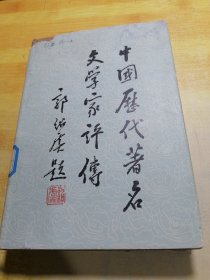 中國歷代著名
文学家評傳
郭紹虞題